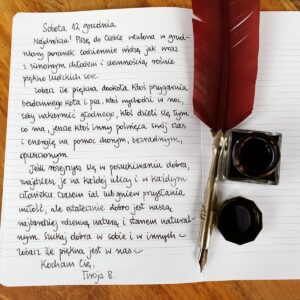 Sobota 12 grudnia
Najdroższa! Piszę do Ciebie wtulona w grud-
niowy poranek. Codziennie widzę, jak wraz
z zimowym chłodem i ciemnością, rośnie
piękno ludzkich serc.
Zobacz ile piękna dookoła. Ktoś przygarnia
bezdomnego kota i psa, ktoś wychodzi w noc,
żeby nakarmić głodnego, ktoś dzieli się tym
co ma, jeszcze ktoś inny poświęca swój czas
i energię na pomoc chorym, bezradnym,
opuszczonym.
Jeśli rozejrzysz się w poszukiwaniu dobra,
znajdziesz je na każdej ulicy i w każdym
człowieku. Czasem żal lub gniew przysłania
miłość, ale ostatecznie dobro jest naszą
najbardziej rdzenną naturą i stanem natural-
nym. Szukaj dobra w sobie i w innych
Zobacz ile piękna jest w nas
Kocham Cię,
Twoja B.